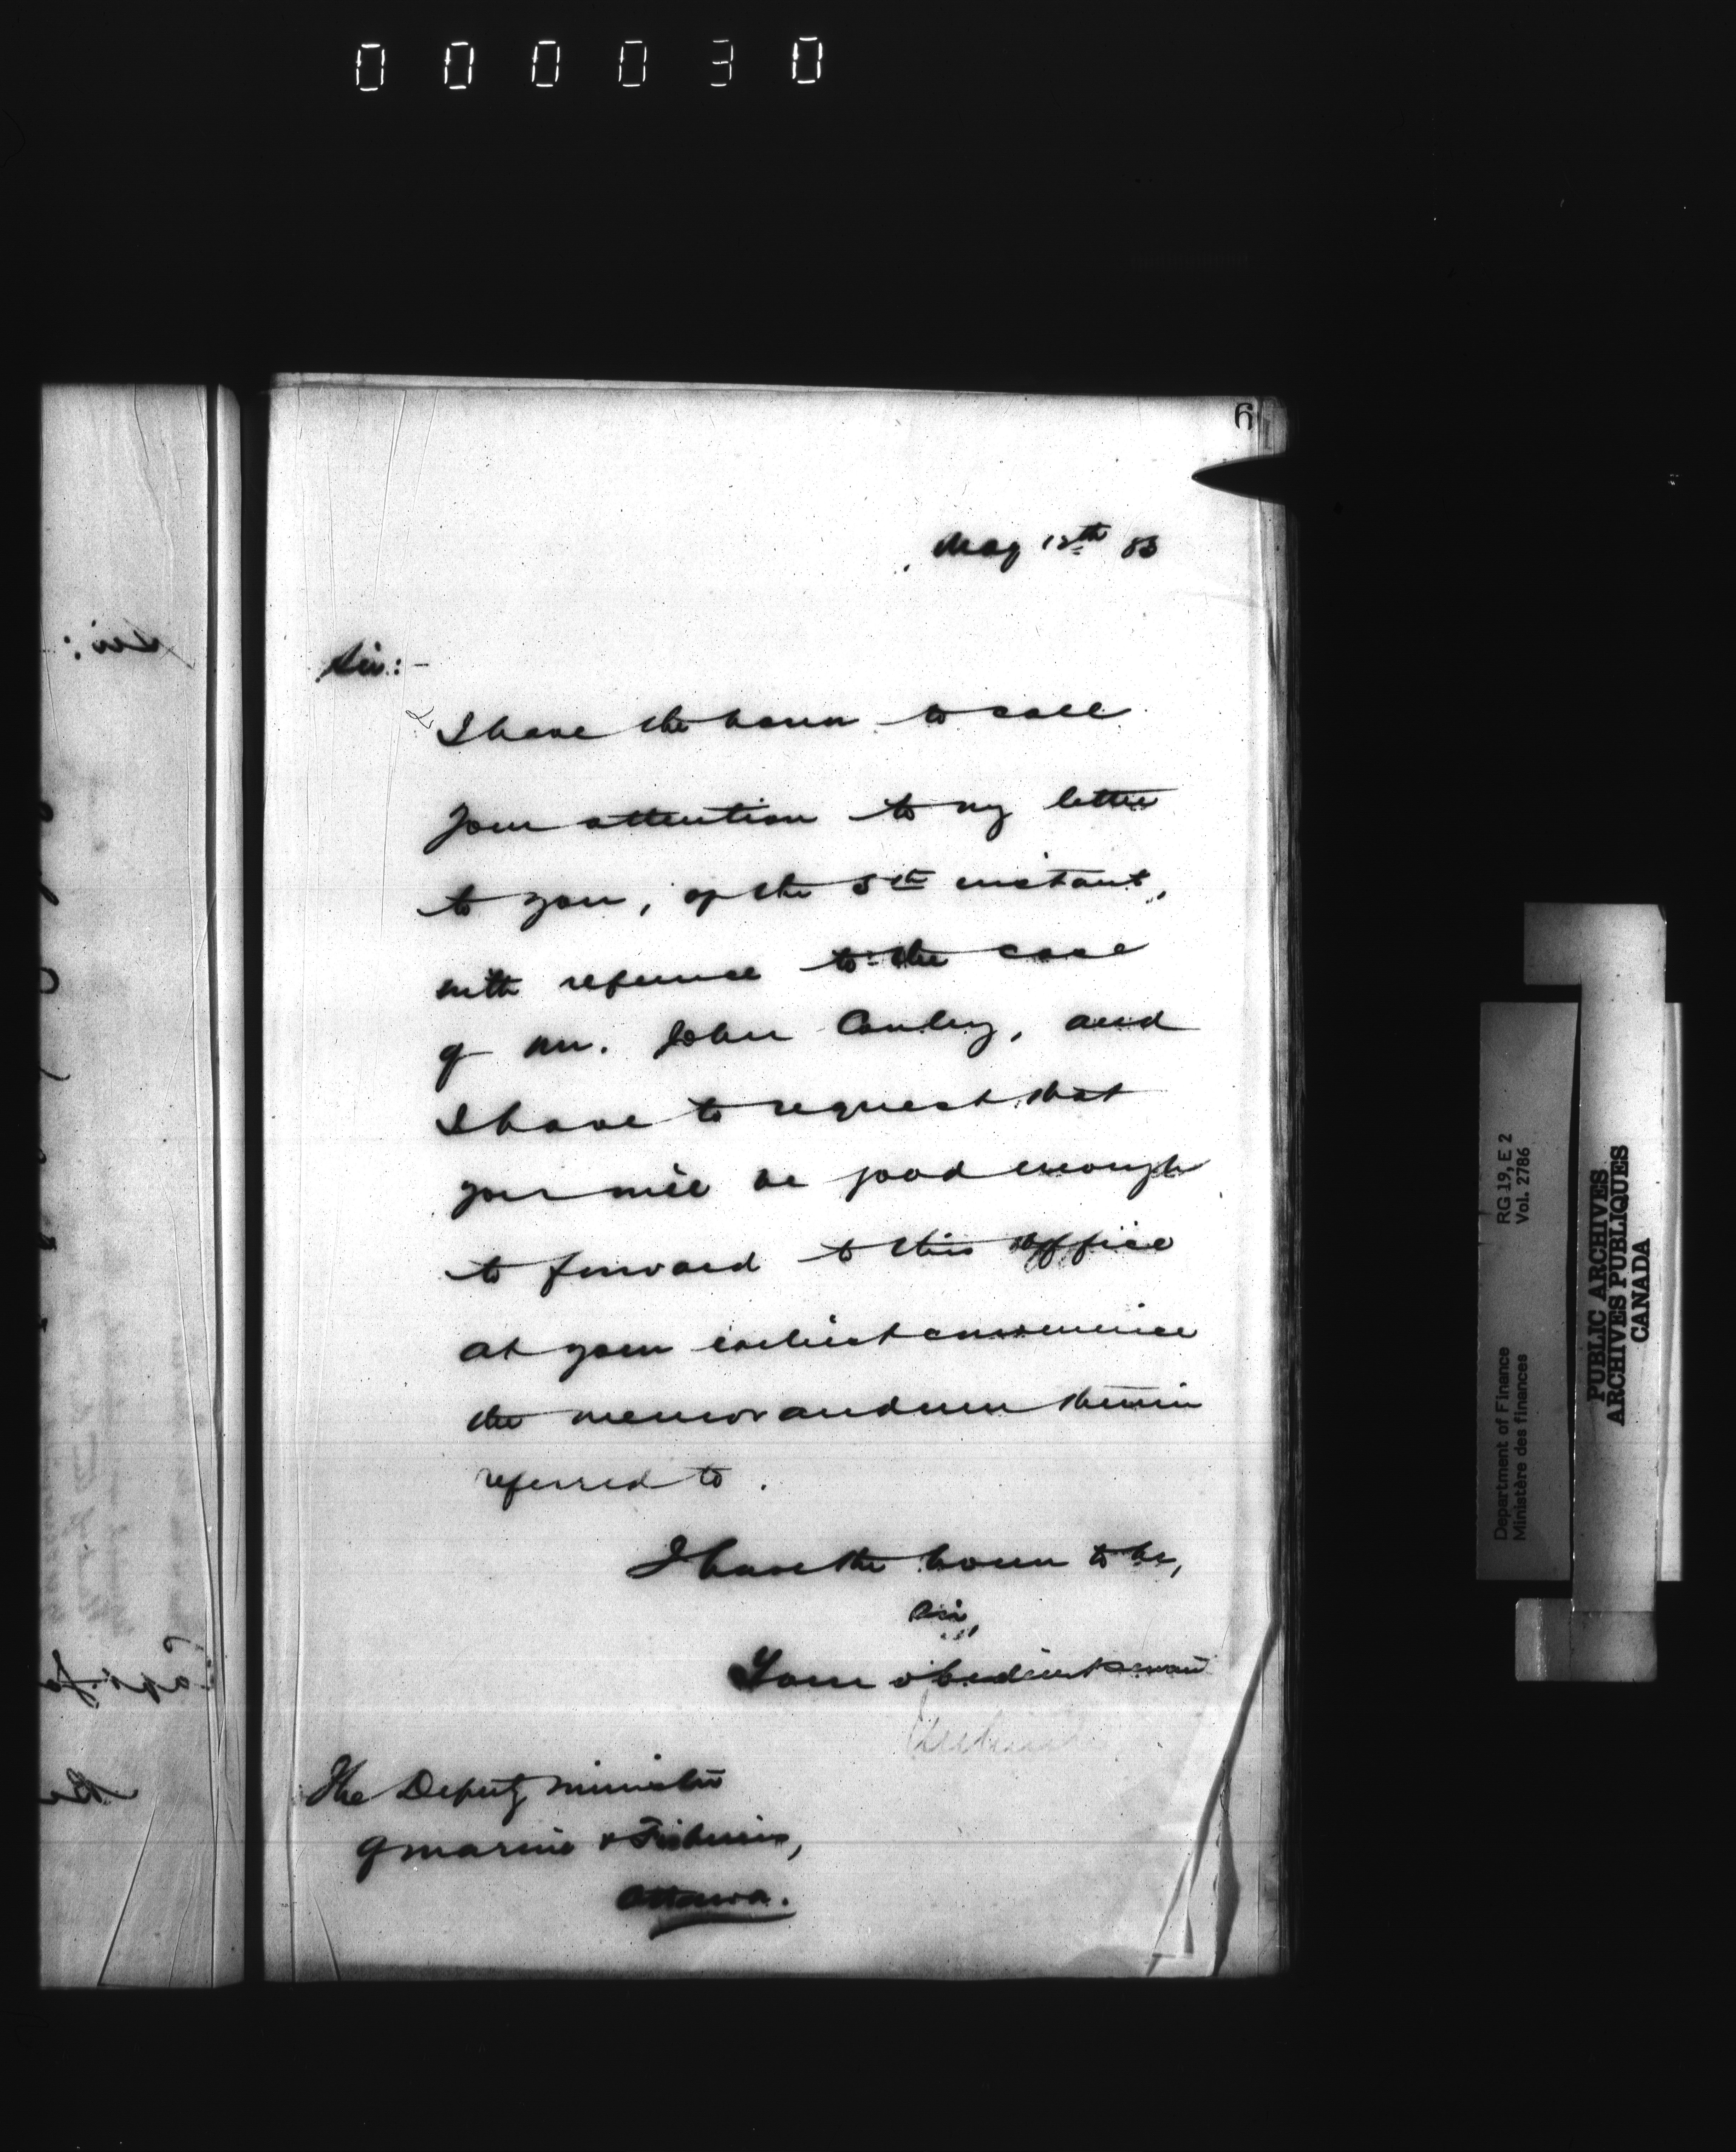 000030
6
May 12th 83
Sir:-
I have the honor to call
your attention to my letter
to you, of the 5th instant,
with reference to the case
of Mr. John Conley, and
I have to request that
you will be good enough
to forward to this office
at your earliest convenience
the memorandum therein
referred to.
I have the honor to be,
Sir,
Your obedient servant
The Deputy Minister
of Marine & Fisheries,
Ottawa.
Department of Finance RG 19, E 2
Ministère des finances Vol. 2786
PUBLIC ARCHIVES
ARCHIVES PUBLIQUES
CANADA